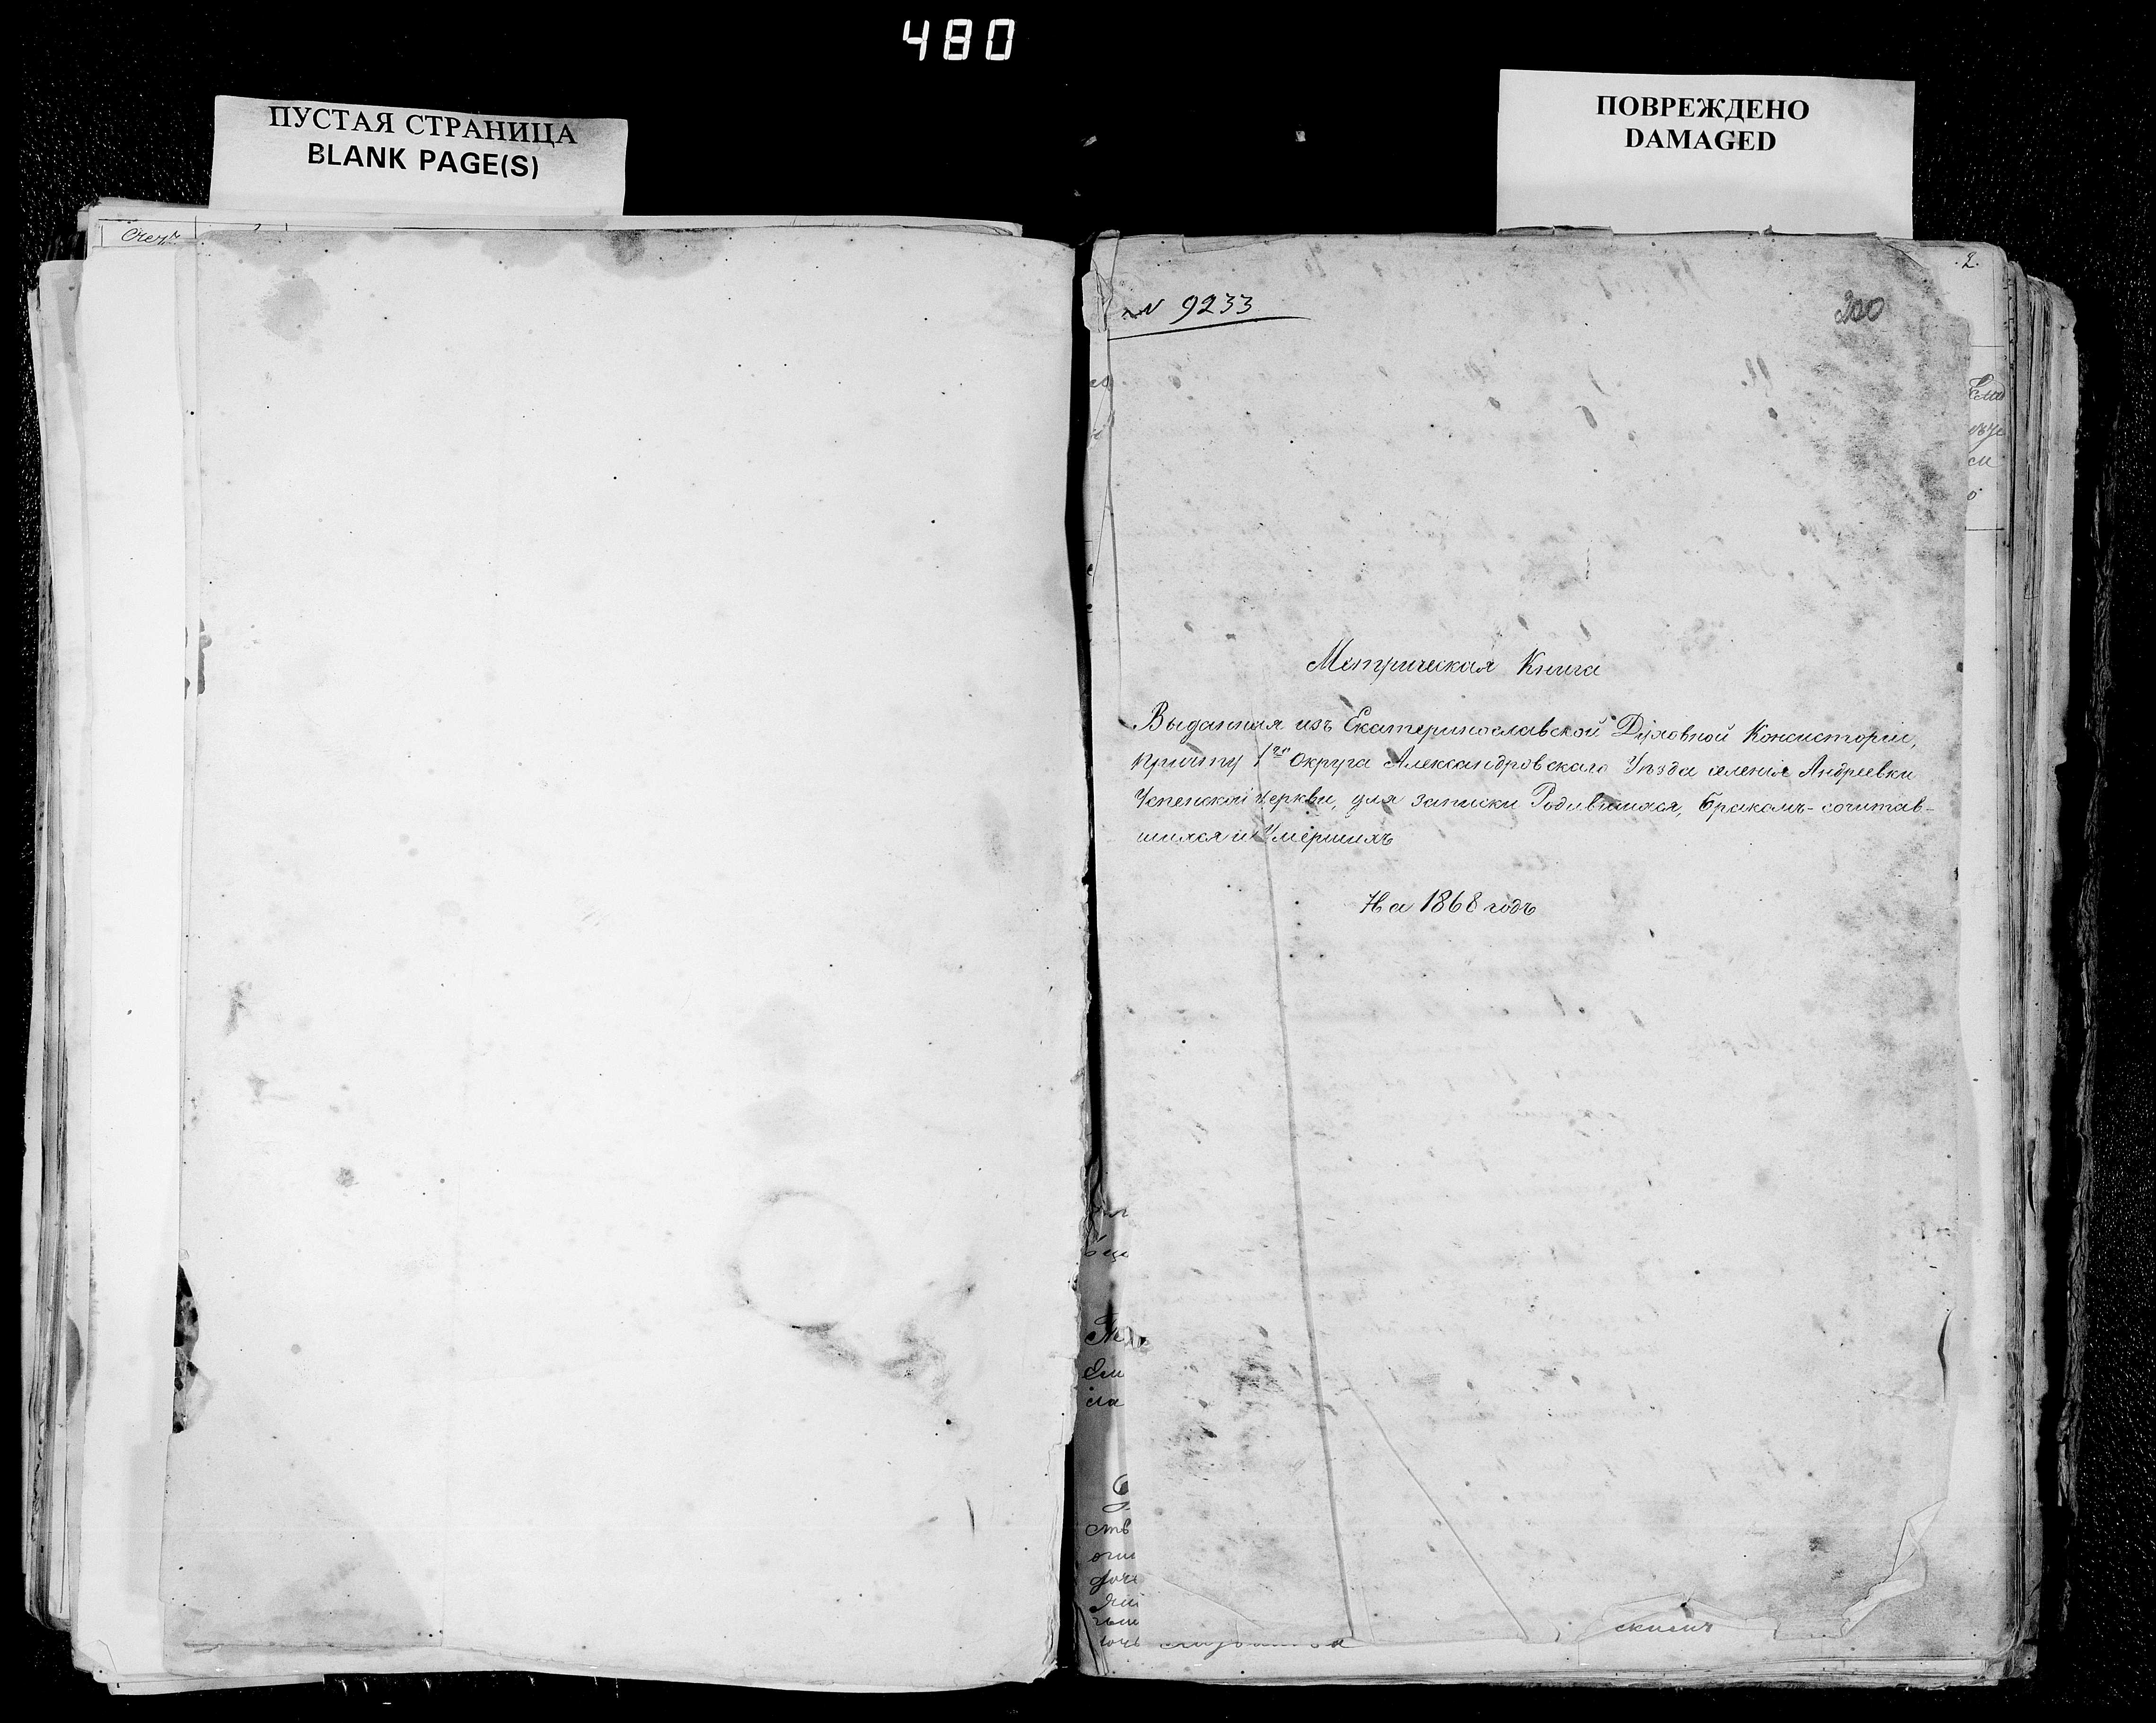 480
ПУСТАЯ СТРАНИЦА
BLANK PAGE(S)
ПОВРЕЖДЕНО
DAMAGED
2.
№ 9233
200
Метрическая Книга
Выданная изъ Екатеринославской Духовной Консисторіи,
причту 1го Округа Александровскаго Уѣзда селенія Андреевки
Успенской церкви, для записки Родившихся, бракомъ-сочитав-
шихся и Умершихъ
На 1868 годъ